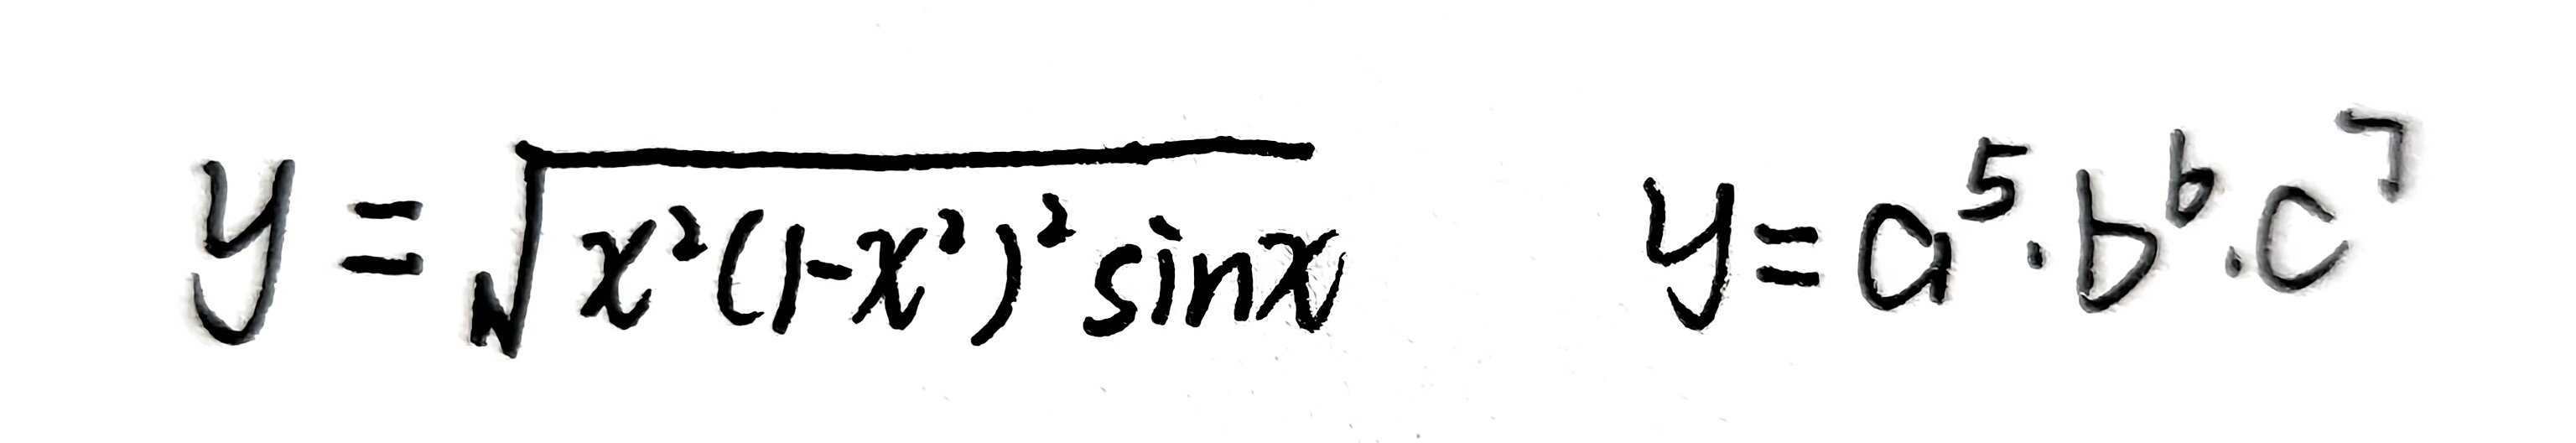 y = √(x²(1-x²)² sinx) y = a⁵·b⁶·c⁷